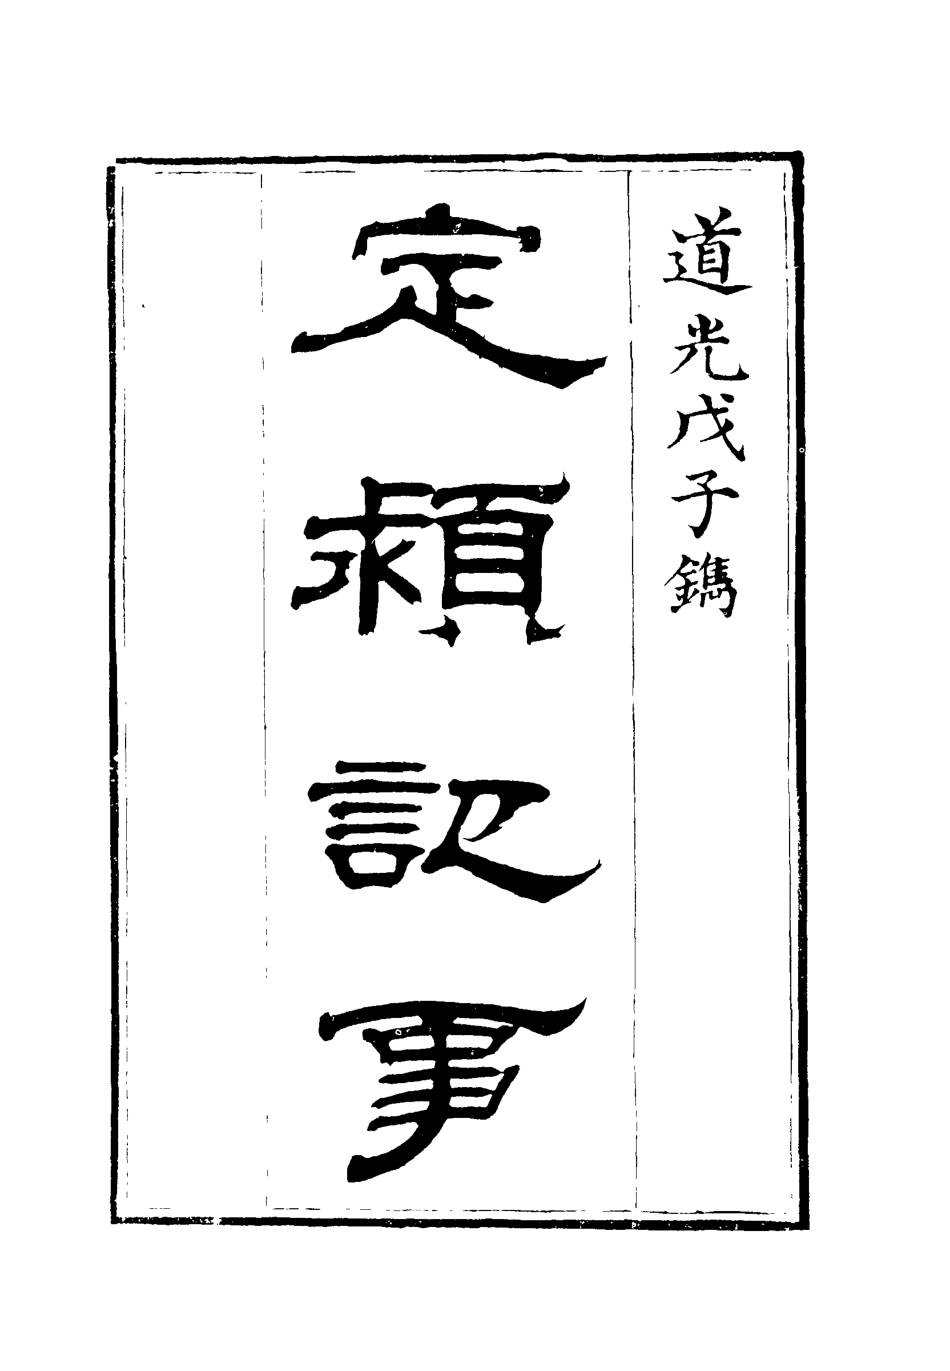 道光戊子鐫
定頻記事